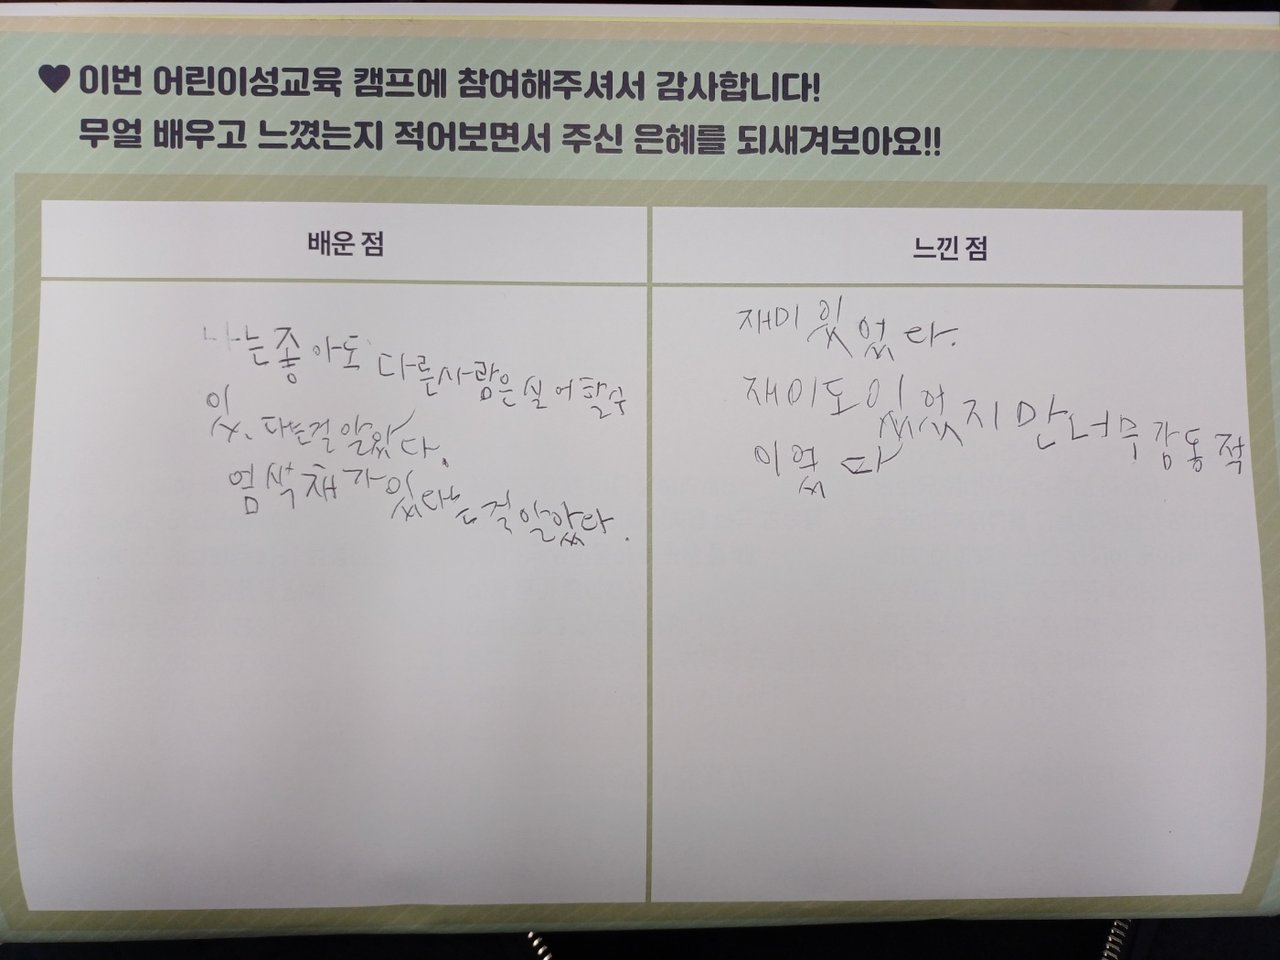 ♥ 이번 어린이성교육 캠프에 참여해주셔서 감사합니다!
무얼 배우고 느꼈는지 적어보면서 주신 은혜를 되새겨보아요!!
배운 점
나는좋아도 다른사람은실어할수
있다는걸알았다.
염색채가있다는걸알았다.
느낀 점
재미있었다.
재미도있었지만너무감동적
이였다